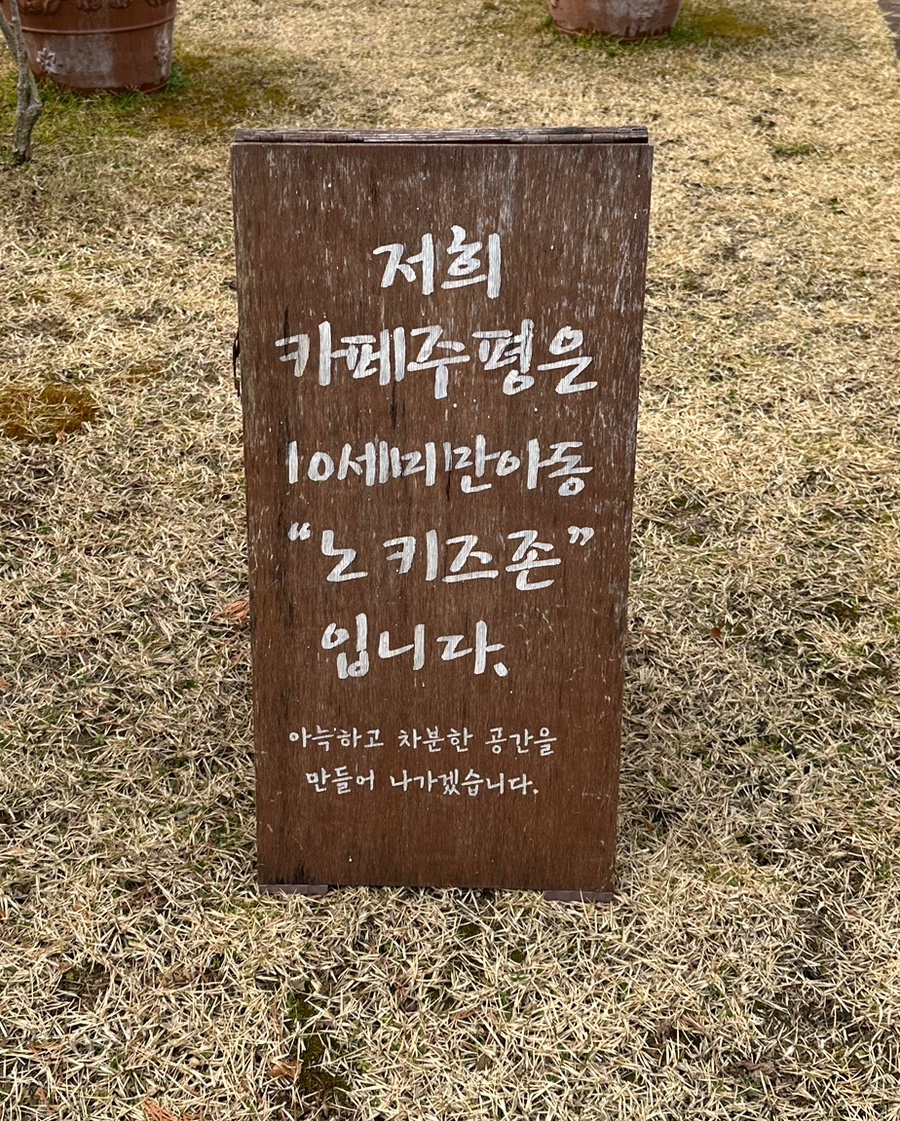 저희
카페주평은
10세미만아동
“노키즈존”
입니다.
아늑하고 차분한 공간을
만들어 나가겠습니다.